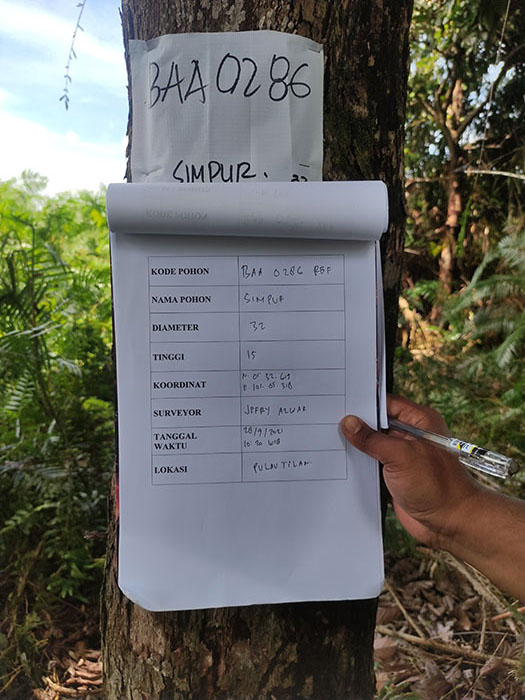 BAA 0286
SIMPUR. 32
KODE POHON BAA 0286 RBF
NAMA POHON SIMPUR
DIAMETER 32
TINGGI 15
KOORDINAT
SURVEYOR JEFRY AZUAR
TANGGAL 28/9/2021
WAKTU 10:20 WIB
LOKASI PULAU TILAN